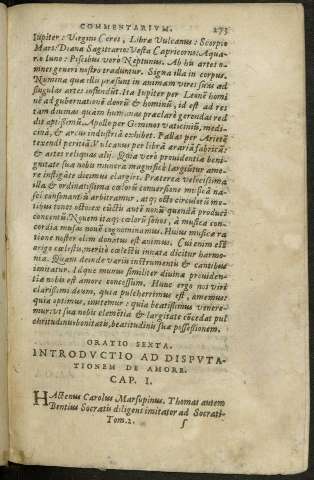 COMMENTARIVM. 273
Iupiter: Virgini Ceres, Libræ Vulcanus: Scorpio
Mars: Diana Sagittario: Vesta Capricorno: Aqua-
rio Iuno: Piscibus verò Neptunus. Ab his artes o-
mnes generi nostro traduntur. Signa illa in corpus,
Numina quæ illis præsunt in animam vires suas ad
singulas artes infundũt. Ita Iupiter per Leonẽ homi
nẽ ad gubernationẽ deorũ & hominũ, id est ad res
tam diuinas quàm humanas præclarè gerendas red
dit aptissimũ. Apollo per Geminos vaticiniũ, medici
nã, & arcus industriã exhibet. Pallas per Arietẽ
texendi peritiã. Vulcanus per librã ærariã fabricã,
& artes reliquas alij. Quia verò prouidentiæ beni-
gnitate sua nobis munera magnificè largiũtur amo-
re instigãte dicimus elargiri. Præterea velocissima
illa & ordinatissima cœlorũ conuersione musicã na-
sci consonantiã arbitramur, atq; octo circulorũ mo-
tibus tonos octo: ex cũctis autẽ nonũ quendã produci
concentũ. Nouem itaq; cœlorũ sonos, à musica con-
cordia musas nouẽ cognominamus. Huius musicæ ra
tione noster olim donatus est animus. Cui enim est
origo cœlestis, meritò cœlestis innata dicitur harmo-
nia. Quam deinde varijs instrumentis & cantibus
imitatur. Idque munus similiter diuinæ prouiden-
tiæ nobis est amore concessum. Hunc ergo nos viri
clarissimi deum, quia pulcherrimus est, amemus:
quia optimus, imitemur: quia beatissimus venere-
mur: vt sua nobis clemẽtia & largitate cõcedat pul
chritudinis bonitatis, beatitudinis suæ possessionem.
ORATIO SEXTA.
INTRODVCTIO AD DISPVTA-
TIONEM DE AMORE.
CAP. I.
HActenus Carolus Marsupinus. Thomas autem
Bentius Socratis diligens imitator ad Socrati-
Tom. 2. ſ